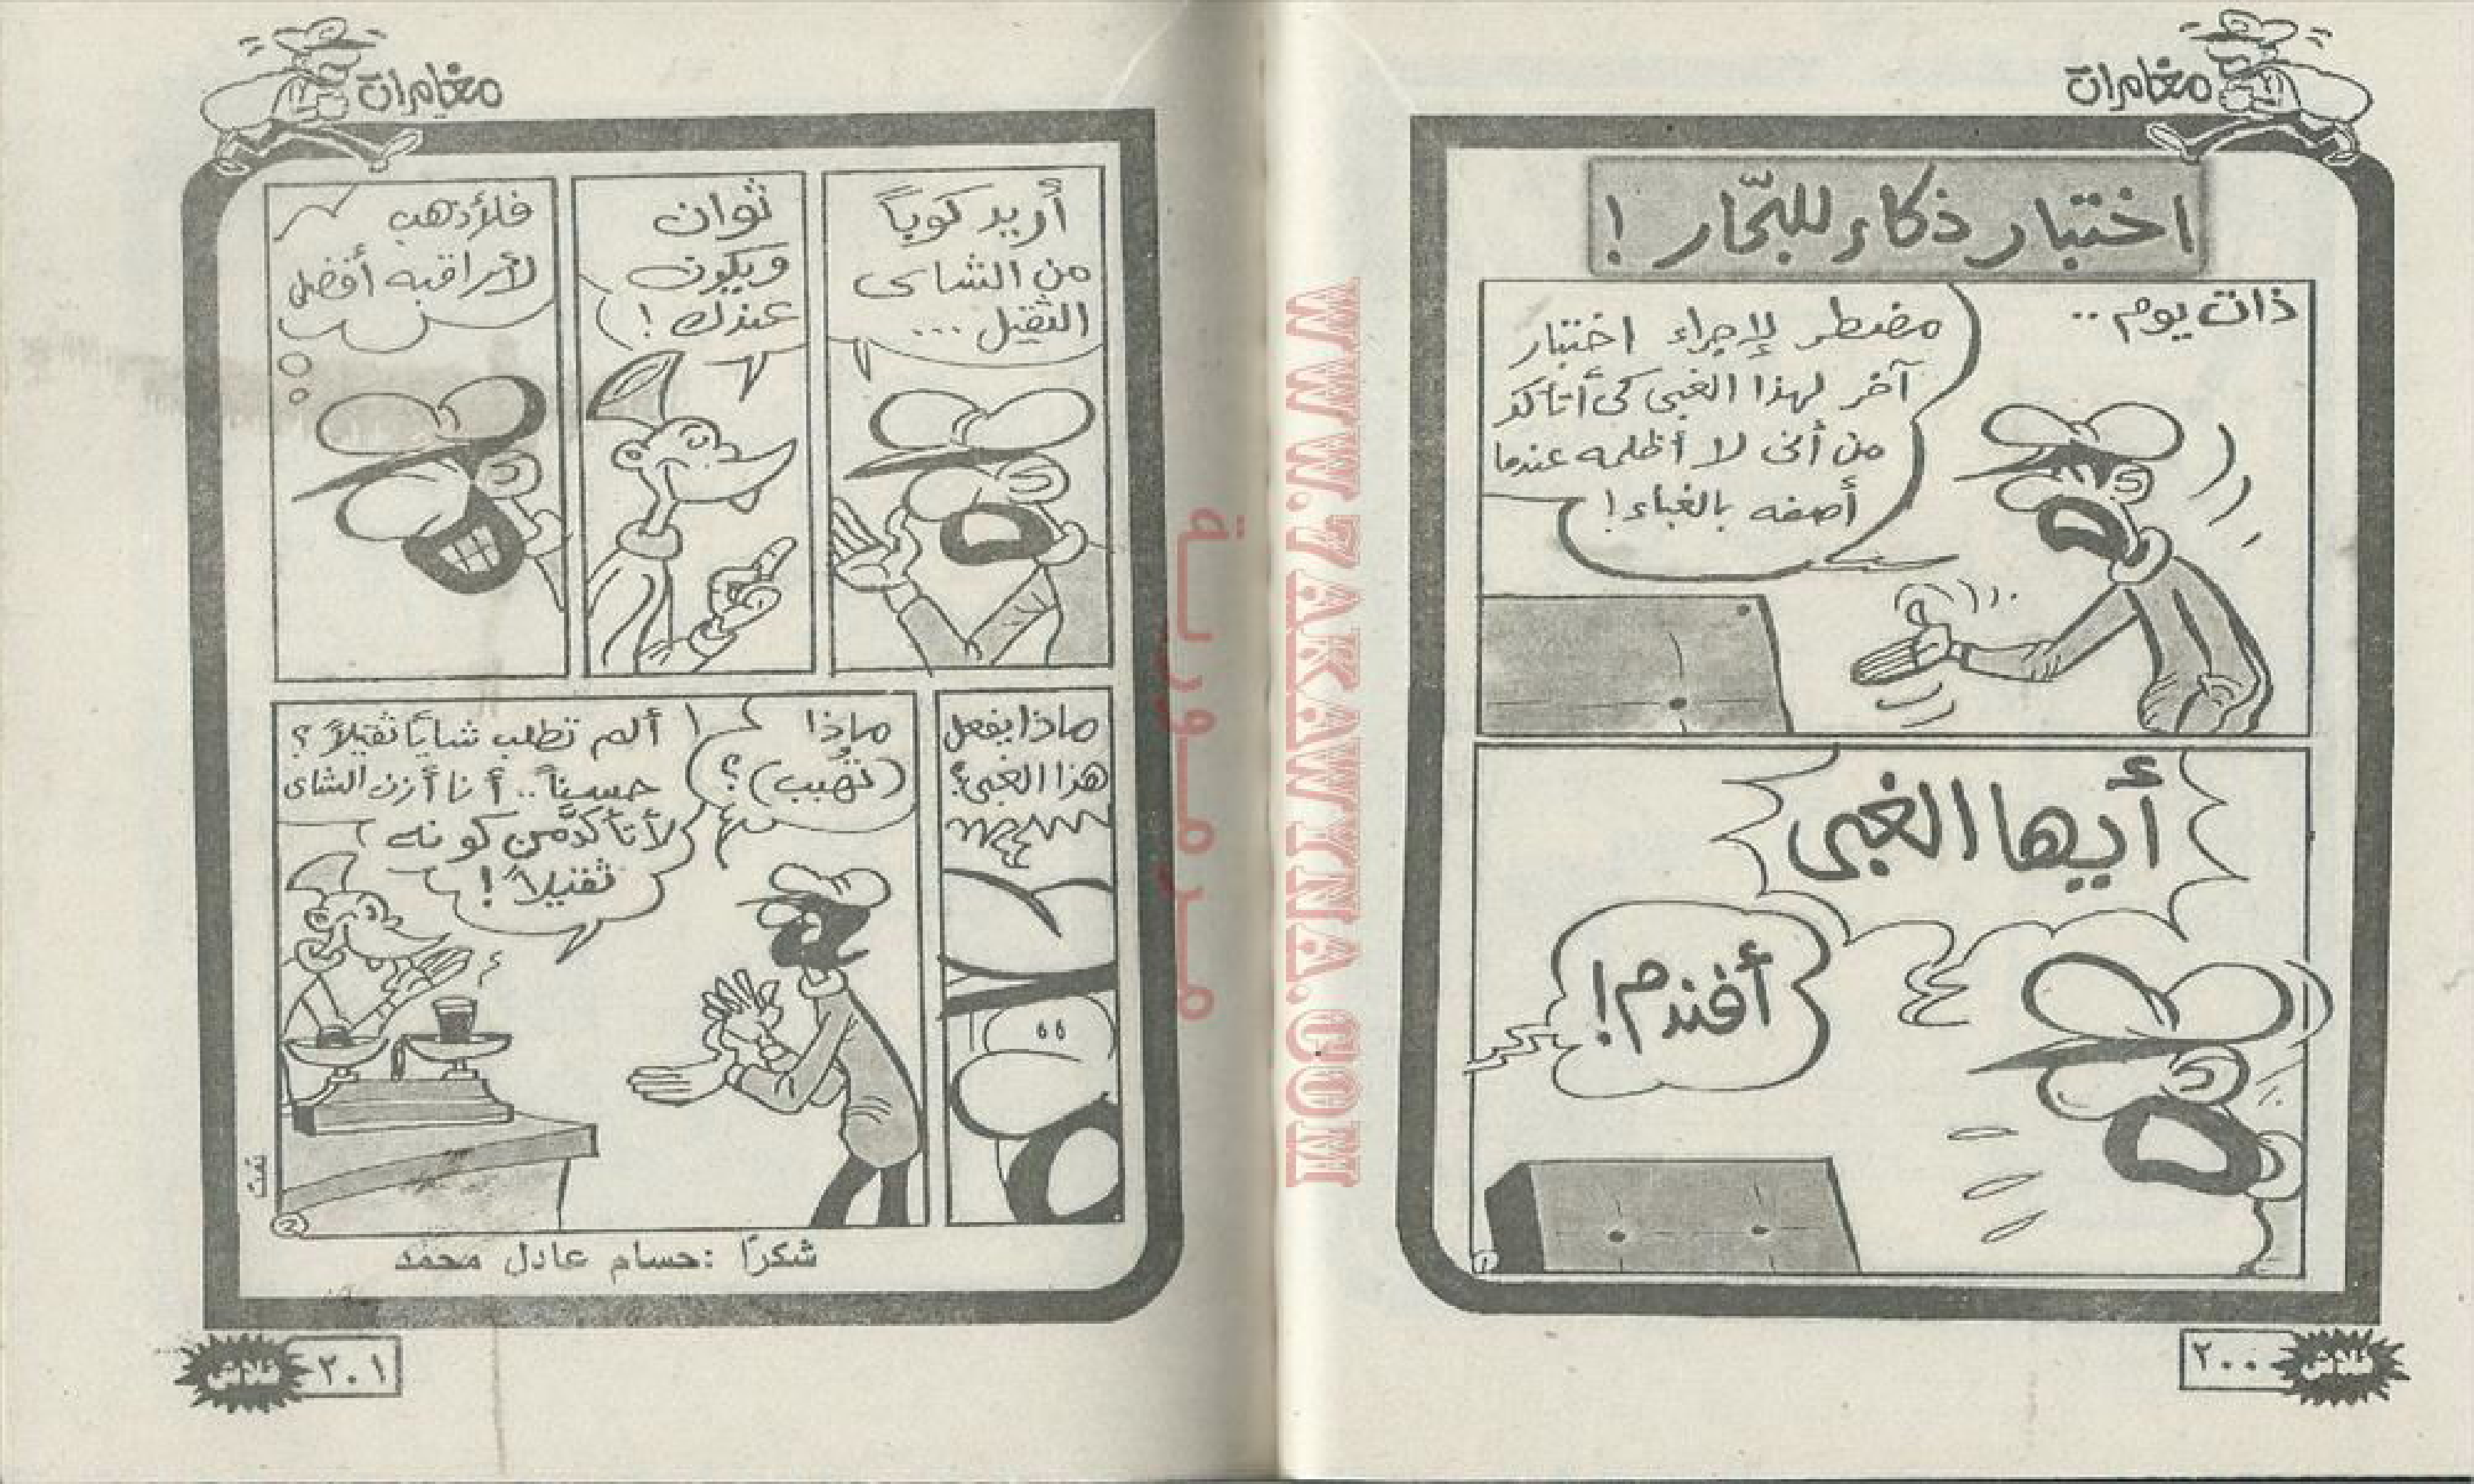 مغامرات
اختبار ذكاء للبحّار !
ذات يوم ..
مضطر لإجراء اختبار
آخر لهذا الغبى كى أتأكد
من أنى لا أظلمه عندما
أصفه بالغباء !
أيها الغبى
أفندم !
٢٠٠
فلاش
مغامرات
أريد كوباً
من الشاى
الثقيل ...
ثوان
ويكون
عندك !
فلأذهب
لأراقبه أفضل
ماذا يفعل
هذا الغبى ؟
ماذا
(تهبب) ؟
ألم تطلب شاياً ثقيلاً ؟
حسناً .. أنا أزن الشاى
لأتأكد من كونه
ثقيلاً !
تمت
شكرًا : حسام عادل محمد
٢٠١
فلاش
WWW.7AKAWYINA.COM
مرمورية